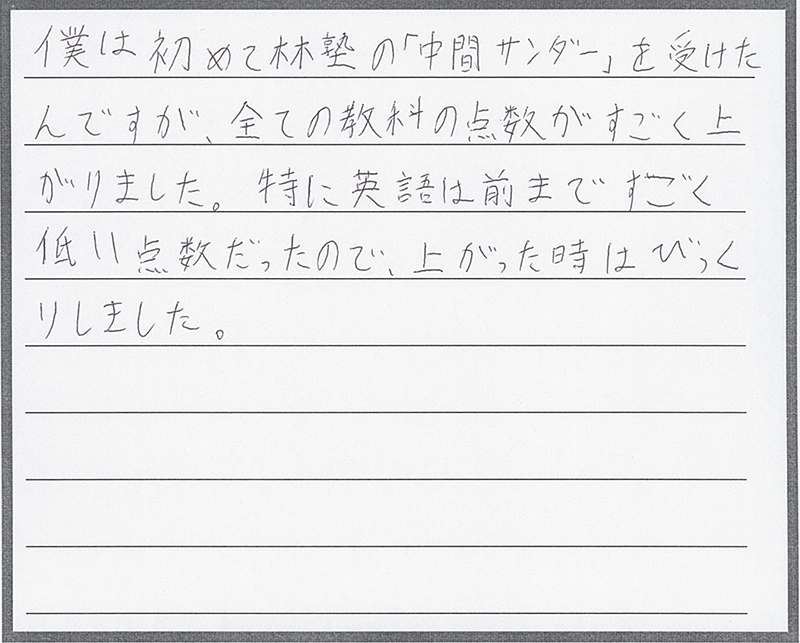 僕は初めて林塾の「中間サンダー」を受けた
んですが、全ての教科の点数がすごく上
がりました。特に英語は前まですごく
低い点数だったので、上がった時はびっく
りしました。